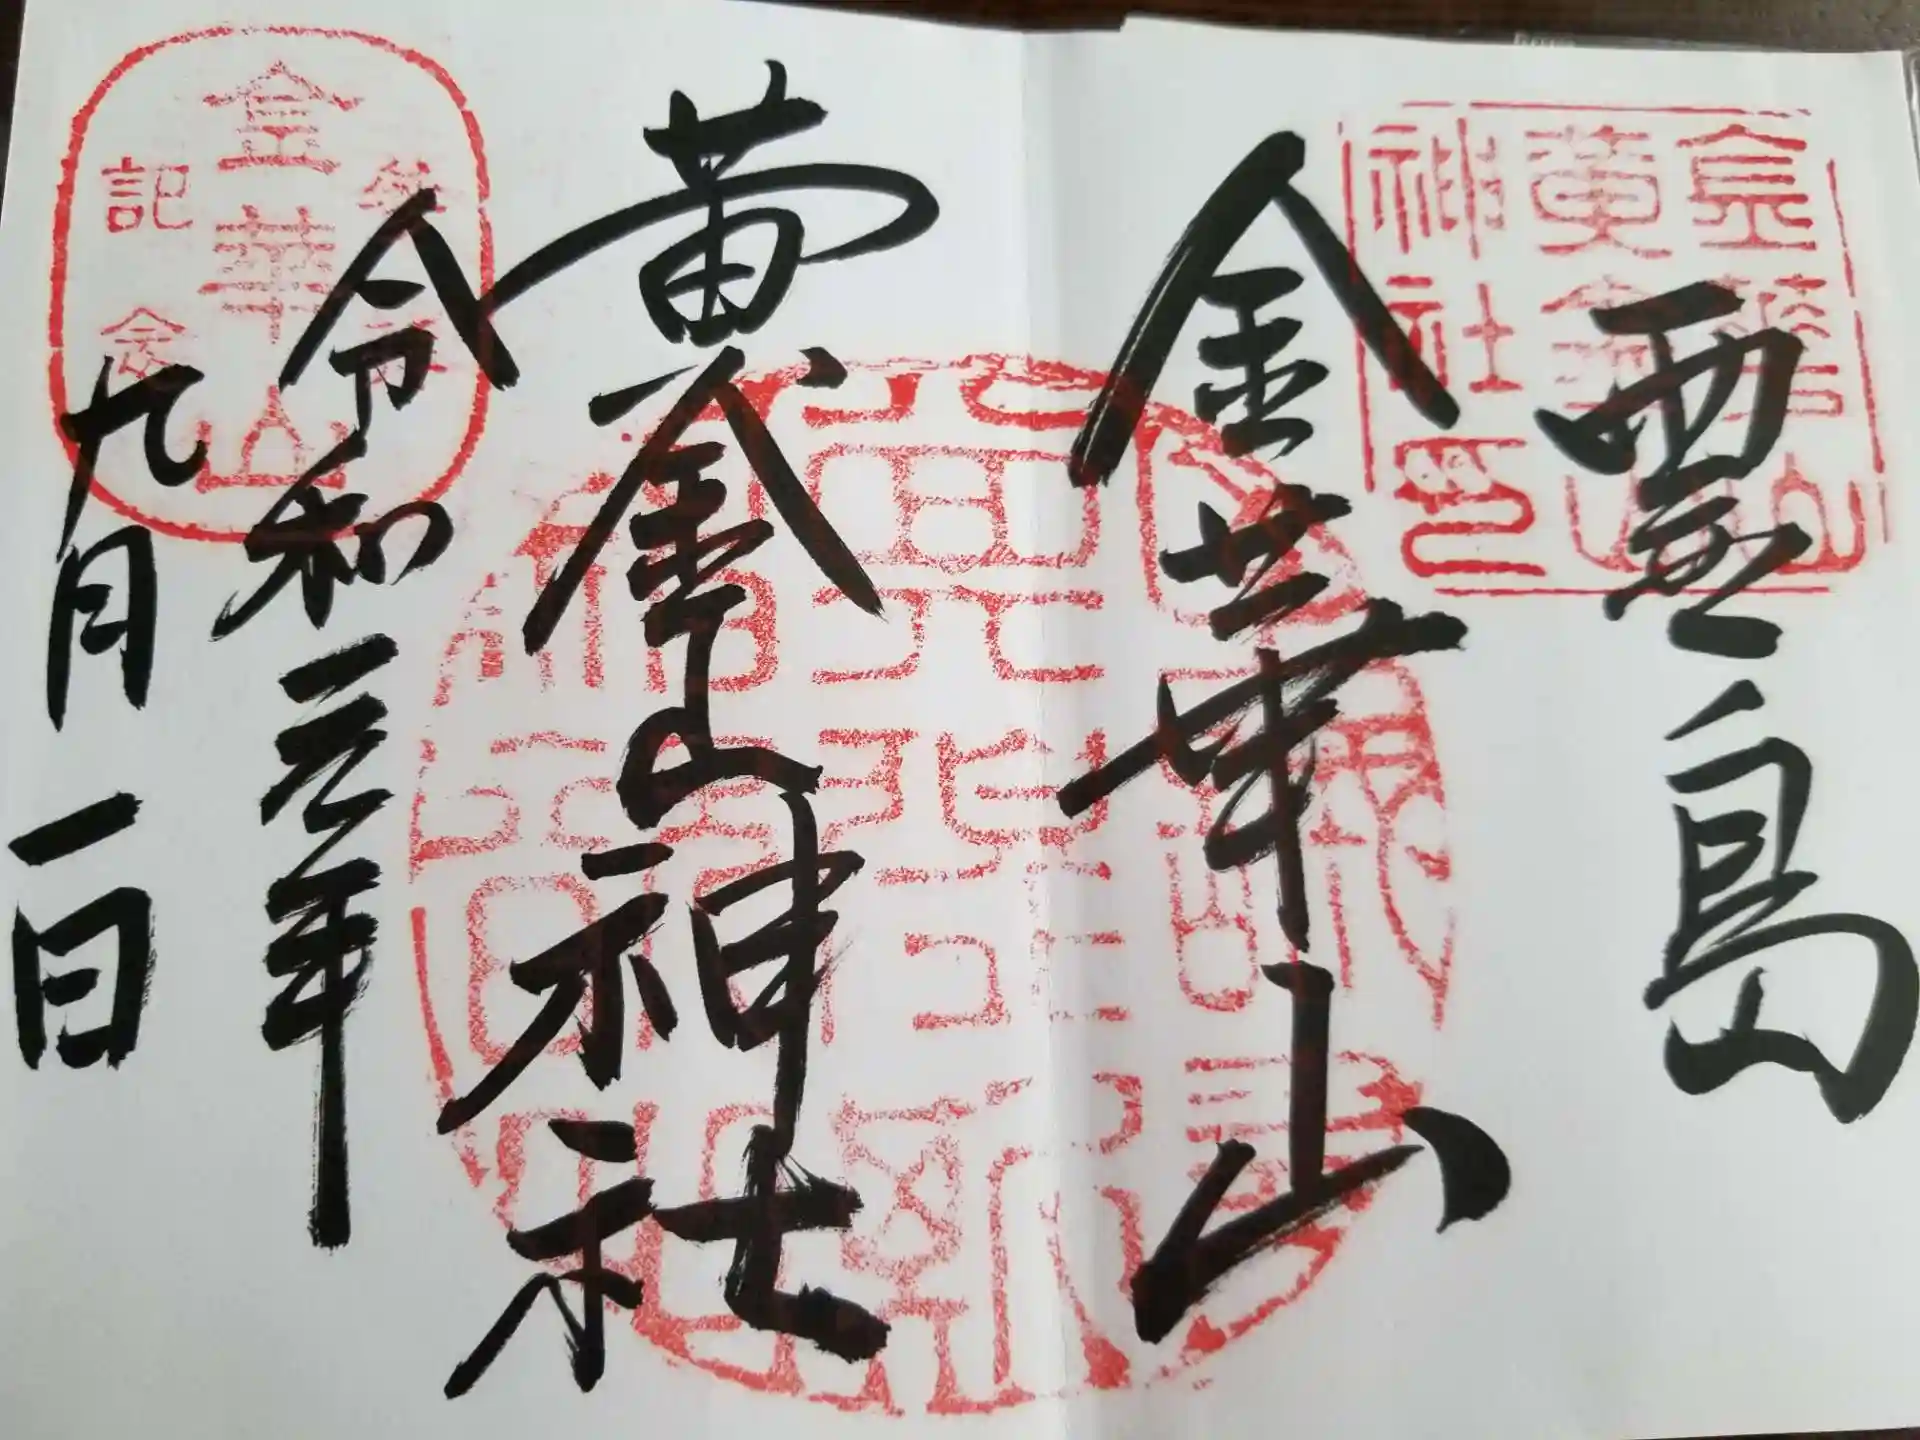 霊島
金華山
黄金山神社
令和元年
九月一日
金華山
黄金山
神社印
登拝
金華山
記念